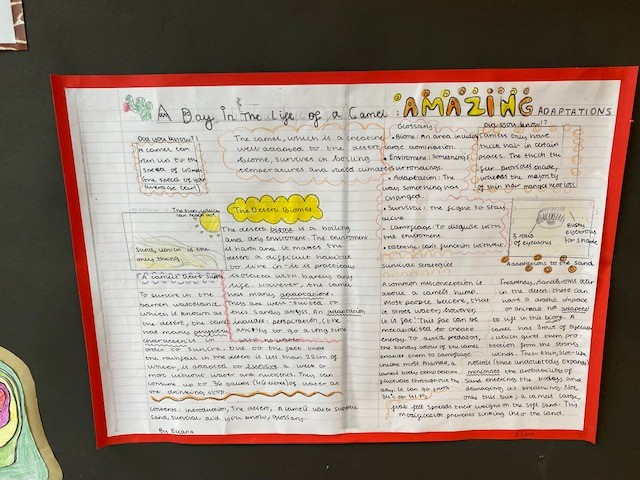 A Day In The Life of a Camel : AMAZING ADAPTATIONS
Did you know?
A camel can
run up to the
speed of
average car!
The camel, which is a creature
well adapted to the desert
biome, survives in boiling
temperatures and climates
Glossary
Biome: An area
large
Environment: Something's
surroundings.
Adaptation: The
way something has
changed.
Survival: the fight to stay
alive
Camouflage: To disguise with
the environment.
essential: can't function without.
Did you know!?
Camels only have
thick hair in certain
places. The thick
fur provides
whereas the majority
of thin hair manages heat loss.
3 rows
of eyelashes
Bushy
eyebrows
for shade
The sun, which
Sand, which is the
only thing
The Desert Biome
The desert biome is a boiling
and dry environment. The environment
is harsh and it makes the
desert a difficult habitat
to live in - it is practically
isolated with barely any
life. However, the camel
has many adaptations.
They are well-suited to
this sandy abyss. An adaptation
includes: perspiration, (the
ability to go a long time
with no water
A camel's water
To survive in the
barren wasteland
which is known as
the desert, the camel
has many physical
in
order to survive. Due to the fact that
the rainfall in the desert is less than 25cm of
water, is adapted to survive a week or
more without water and nutrients. They can
consume up to 30 gallons of water at
one drinking stop
Contents: Introduction, The desert, A camel's water
sand, survival, did you know, glossary.
By
Survival strategies
A common misconception is
about a camel's hump.
Most people believe, that
it stores water; however,
it is fat. This fat can be
metabolised to create
energy. To avoid predators,
the sandy colour of the camel
enables them to camouflage.
Unlike most mammals, a
camel's body temperature
fluctuates throughout the
day. It can go from
34°c to 41.7°c
Adaptations to the sand
Frequently, sandstorms occur
in the desert: these can
have a drastic impact
on animals not adapted
to life in this biome. A
camel has 3 rows of eyelashes
which gives them
from the strong
winds. Their thin, slot-like
nostrils (that undoubtedly expands)
minimises the probability of
sand entering the body and
damaging its breathing. Not
only this but, a camel's large,
flat feet spreads their weight on the soft sand. This
modification prevents sinking into the sand.